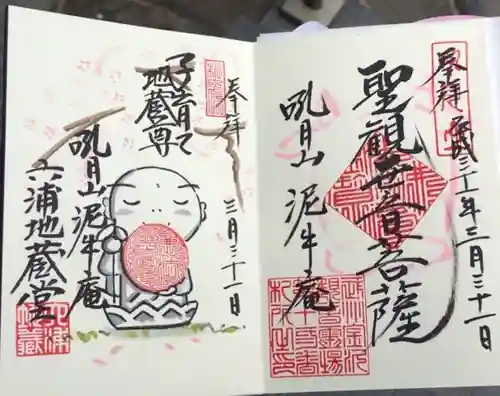 奉拝 平成三十一年三月三十一日
聖観世音菩薩
吼月山 泥牛庵
奉拝 三月三十一日
子育て
地蔵尊
吼月山 泥牛庵
六浦地蔵堂